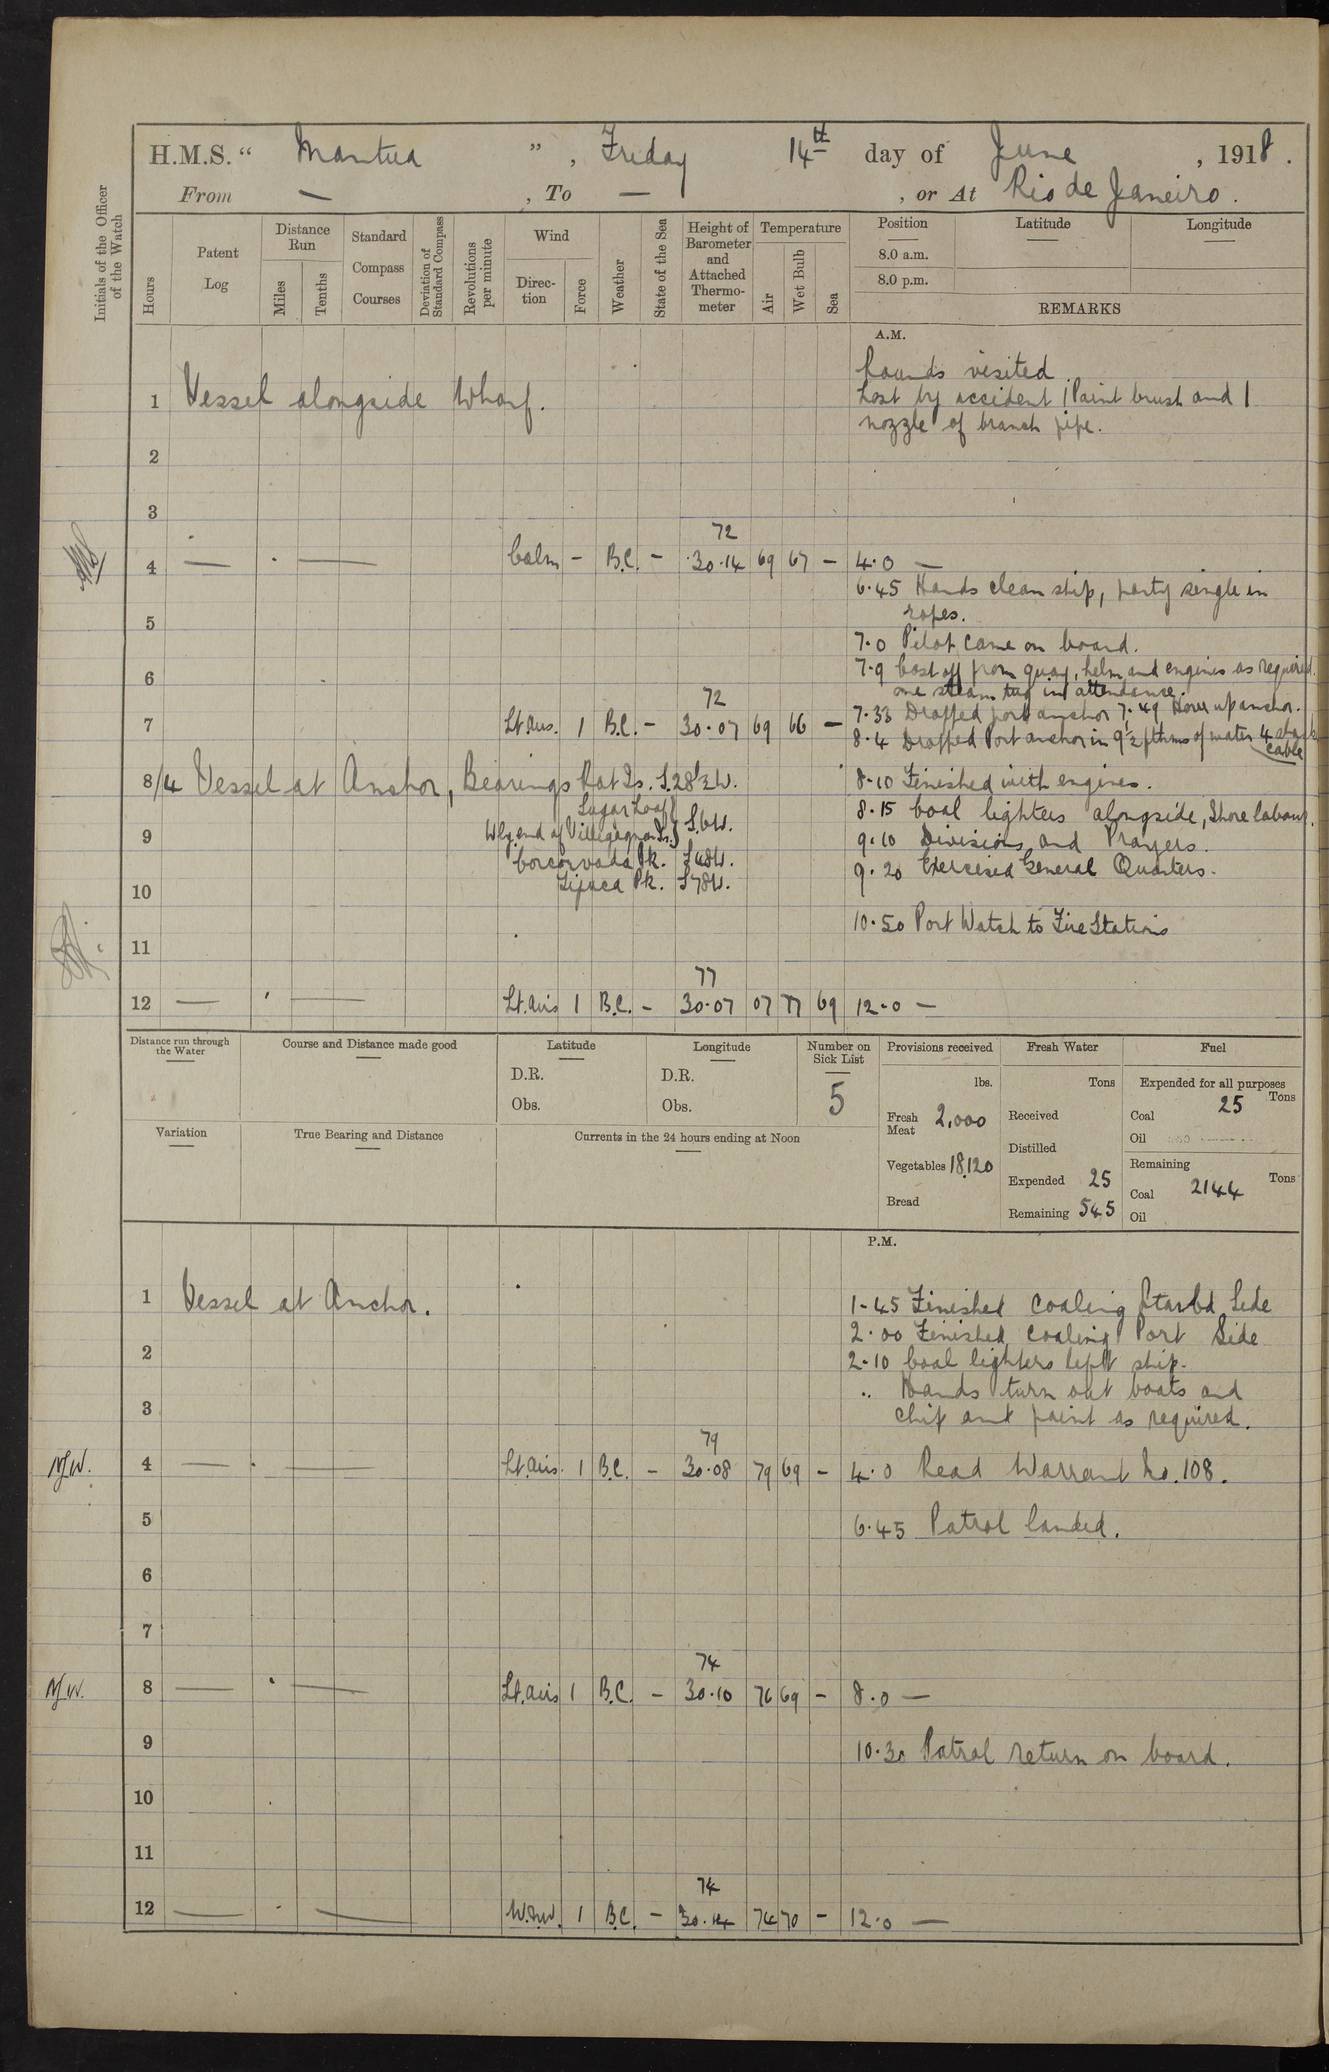 H.M.S. " Mantua " , Friday 14th day of June , 1918 .
From — , To — , or At Rio de Janeiro .
Initials of the Officer of the Watch
Hours
Patent Log
Distance Run
Miles
Tenths
Standard Compass Courses
Deviation of Standard Compass
Revolutions per minute
Wind
Direction
Force
Weather
State of the Sea
Height of Barometer and Attached Thermometer
Temperature
Air
Wet Bulb
Sea
Position Latitude Longitude
8.0 a.m.
8.0 p.m.
REMARKS
A.M.
Rounds visited.
1 Vessel alongside Wharf. Lost by accident 1 Paint brush and 1
nozzle of branch pipe.
2
3
72
4 — — Calm - B.C. - 30.14 69 67 - 4.0 —
6.45 Hands clean ship, party single in
ropes.
5
7.0 Pilot came on board.
7.9 Cast off from quay, helm and engines as required
6
one steam tug in attendance.
72
7.33 Dropped port anchor 7.49 Hove up anchor.
7 Lt. airs. 1 B.C. - 30.07 69 66 —
8.4 Dropped Port anchor in 9½ fthms of water 4 shack
cable
8/4 Vessel at Anchor, Bearings Rat Is. S.28½W. 8.10 Finished with engines.
Sugar Loaf
8.15 Coal lighters alongside, Shore labour.
9 Wly end of Villegagnon Is.} S6W.
9.10 Divisions and Prayers.
Corcorvado Pk. S48W.
9.20 Exercised General Quarters.
10 Tijuca Pk. S78W.
10.50 Port Watch to Fire Stations
11
77
12 — — Lt. airs 1 B.C. - 30.07 07 77 69 12.0 —
Distance run through the Water
Course and Distance made good
Latitude
D.R.
Obs.
Longitude
D.R.
Obs.
Number on Sick List
5
Provisions received
lbs.
Fresh Meat 2,000
Vegetables 18,120
Bread
Fresh Water
Tons
Received
Distilled
Expended 25
Remaining 545
Fuel
Expended for all purposes
Tons
Coal 25
Oil
Remaining
Tons
Coal 2144
Oil
Variation
True Bearing and Distance
Currents in the 24 hours ending at Noon
P.M.
1 Vessel at Anchor. 1.45 Finished Coaling Starbd Side
2.00 Finished Coaling Port Side
2
2.10 Coal lighters left ship.
" Hands turn out boats and
3
chip and paint as required.
79
N.W. 4 — — Lt. airs. 1 B.C. - 30.08 79 69 - 4.0 Read Warrant No. 108.
5 6.45 Patrol landed.
6
7
74
N.W. 8 — — Lt. airs 1 B.C. - 30.10 76 69 - 8.0 —
9 10.30 Patrol return on board.
10
11
74
12 — — W.N.W. 1 B.C. - 30.14 74 70 - 12.0 —